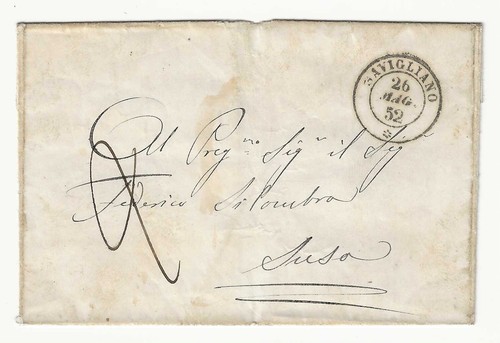 SAVIGLIANO
26
MAG
52
Al Preg.mo Sig.r il Sig.r
Federico Silombra
Susa